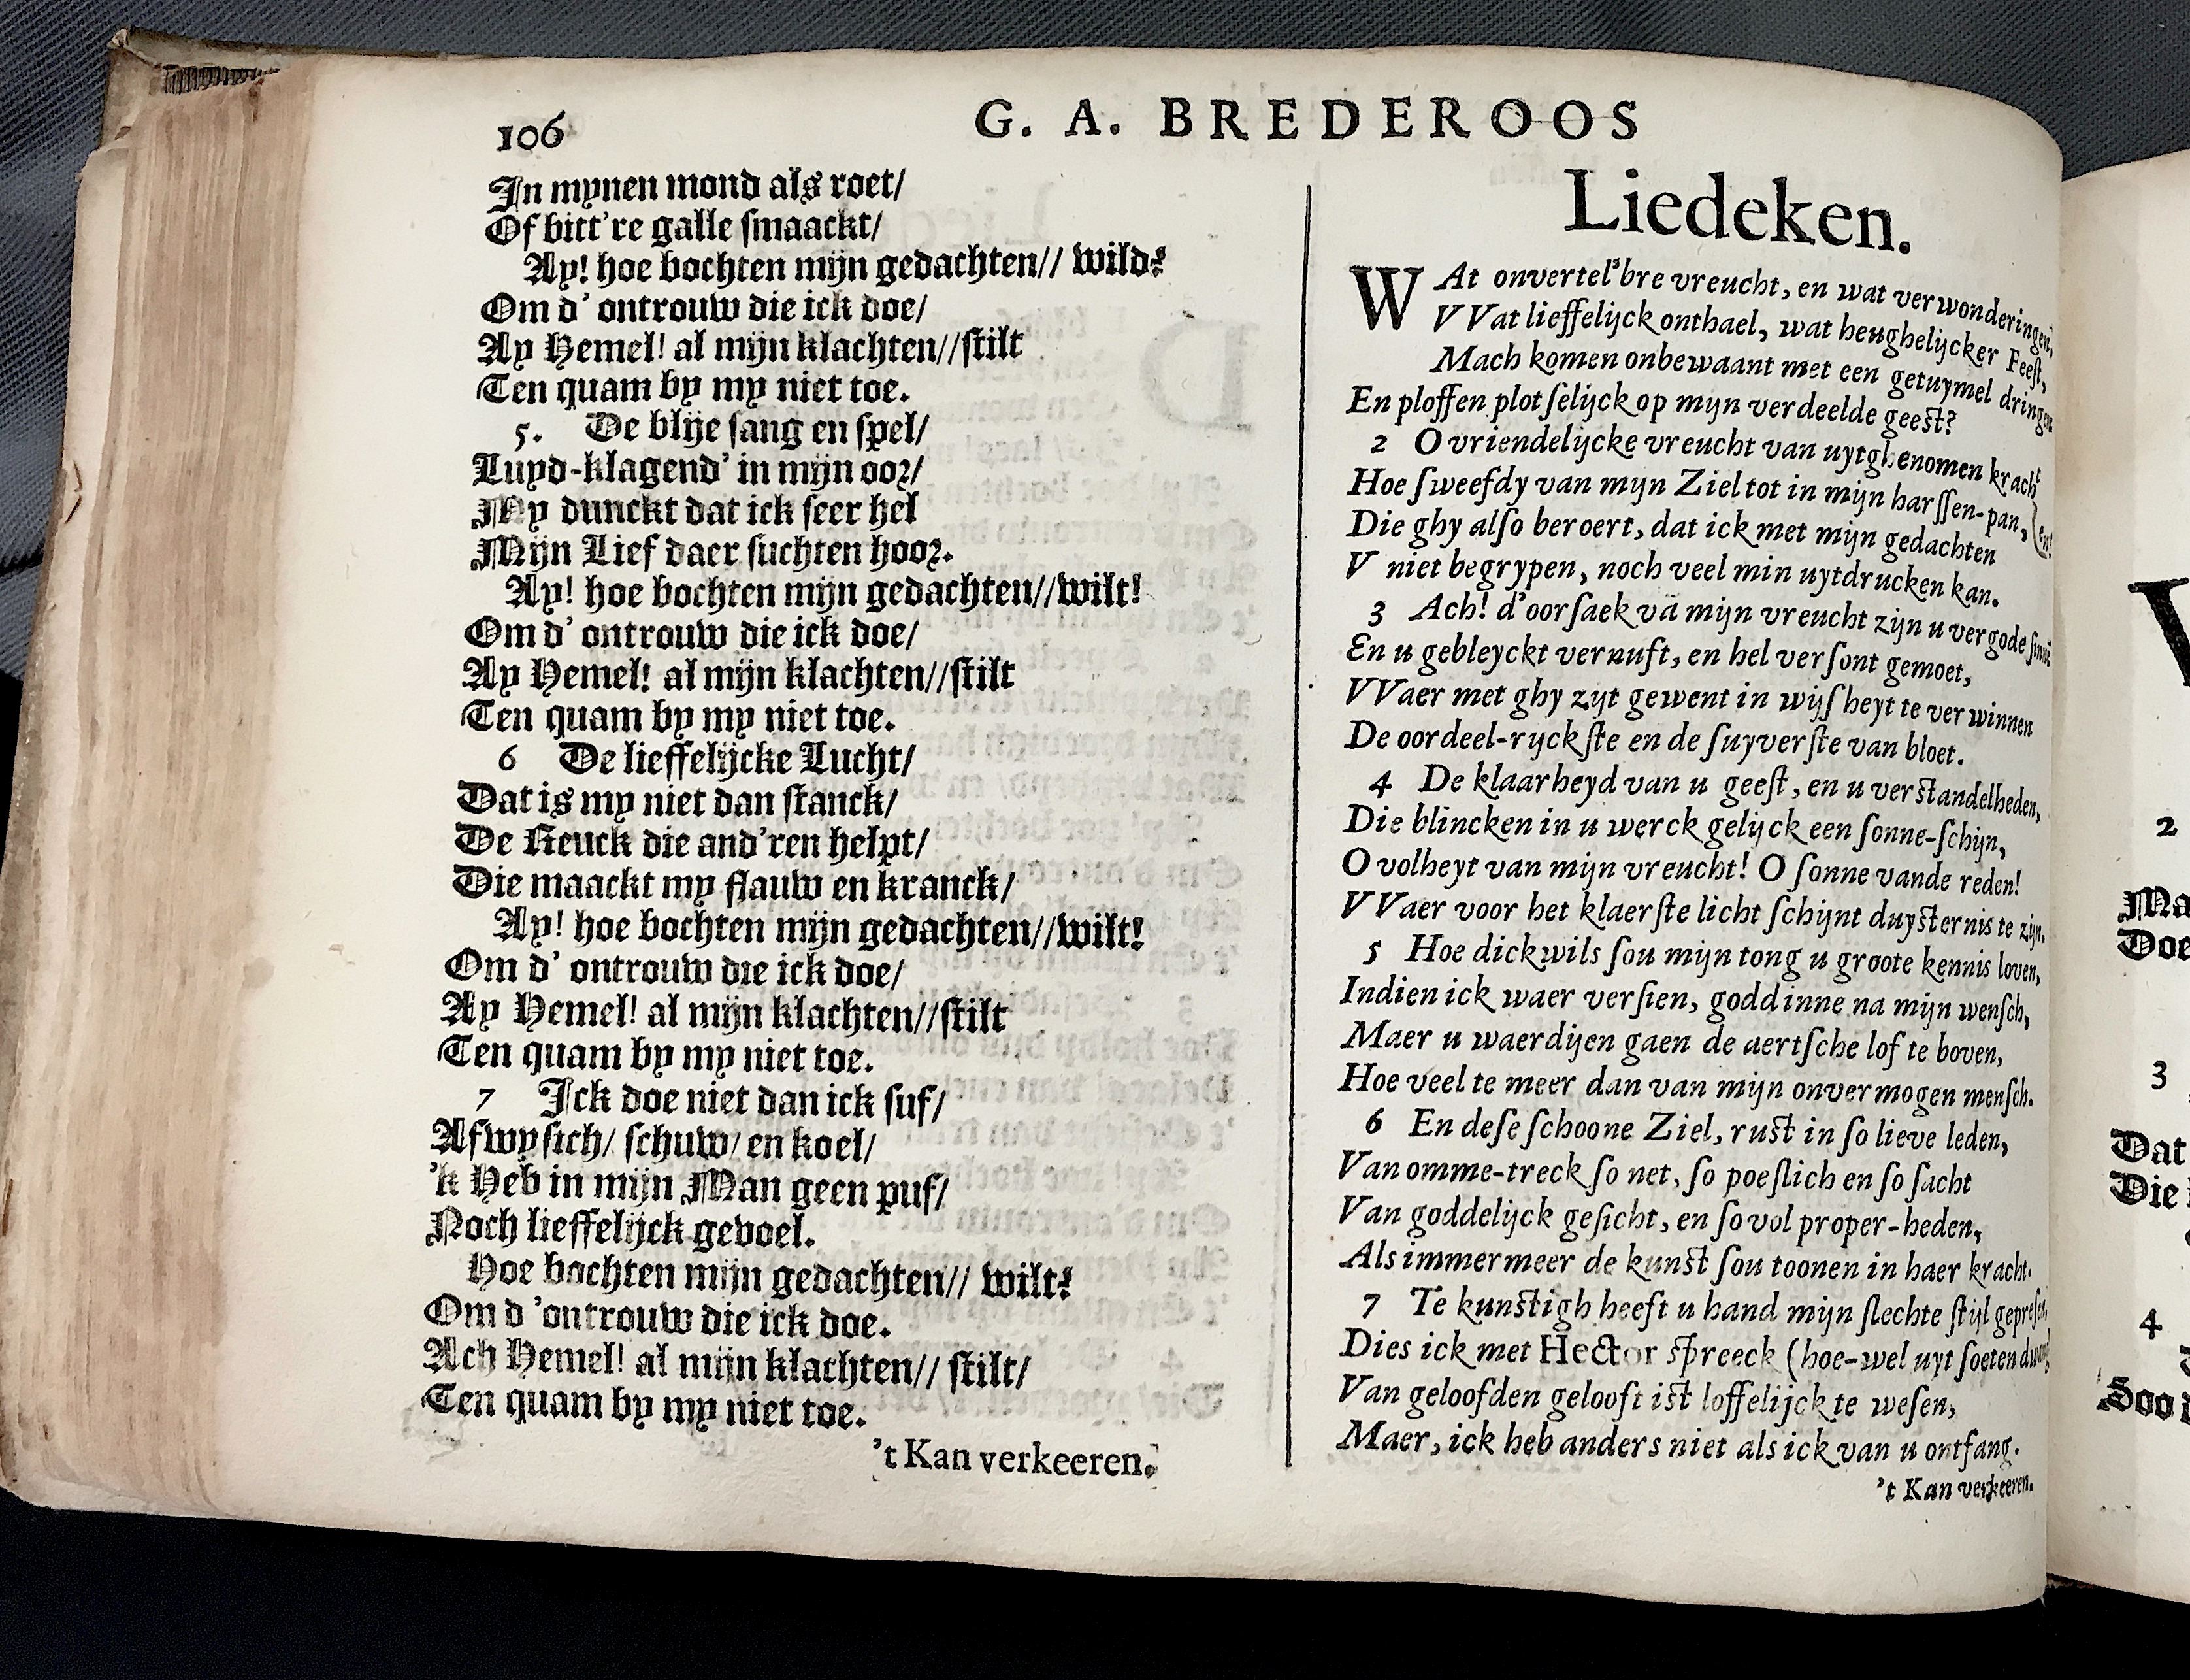 106
G. A. BREDEROOS
In mynen mond als roet/
Of bitt're galle smaackt/
Ay! hoe bochten mijn gedachten// wild?
Om d' ontrouw die ick doe/
Ay Hemel! al mijn klachten//stilt
Ten quam by my niet toe.
5. De blije sang en spel/
Luyd-klagend' in mijn oor/
My dunckt dat ick seer hel
Mijn Lief daer suchten hoor.
Ay! hoe bochten mijn gedachten//wilt!
Om d' ontrouw die ick doe/
Ay Hemel! al mijn klachten//stilt
Ten quam by my niet toe.
6 De lieffelijcke Lucht/
Dat is my niet dan stanck/
De Reuck die and'ren helpt/
Die maackt my flauw en kranck/
Ay! hoe bochten mijn gedachten//wilt!
Om d' ontrouw die ick doe/
Ay Hemel! al mijn klachten//stilt
Ten quam by my niet toe.
7 Ick doe niet dan ick suf/
Afwysich/ schuw/ en koel/
'k Heb in mijn Man geen puf/
Noch lieffelijck gevoel.
Hoe bochten mijn gedachten// wilt?
Om d 'ontrouw die ick doe.
Ach Hemel! al mijn klachten// stilt/
Ten quam by my niet toe.
't Kan verkeeren.
Liedeken.
WAt onvertel'bre vreucht, en wat verwonderingen,
VVat lieffelijck onthael, wat heughelijcker Feest,
Mach komen onbewaant met een getuymel dringen
En ploffen plotselijck op mijn verdeelde geest?
2 O vriendelijcke vreucht van uytghenomen kracht
Hoe sweefdy van mijn Ziel tot in mijn harssen-pan, (en!
Die ghy also beroert, dat ick met mijn gedachten
V niet begrypen, noch veel min uytdrucken kan.
3 Ach! d'oorsaek vā mijn vreucht zijn u vergode
En u gebleyckt vernuft, en hel versont gemoet,
VVaer met ghy zyt gewent in wijsheyt te verwinnen
De oordeel-ryckste en de suyverste van bloet.
4 De klaarheyd van u geest, en u verstandelheden,
Die blincken in u werck gelijck een sonne-schijn,
O volheyt van mijn vreucht! O sonne vande reden!
VVaer voor het klaerste licht schijnt duysternis te zijn.
5 Hoe dickwils sou mijn tong u groote kennis loven,
Indien ick waer versien, goddinne na mijn wensch,
Maer u waerdijen gaen de aertsche lof te boven,
Hoe veel te meer dan van mijn onvermogen mensch.
6 En dese schoone Ziel, rust in so lieve leden,
Van omme-treck so net, so poeslich en so sacht
Van goddelijck gesicht, en so vol proper-heden,
Als immermeer de kunst sou toonen in haer kracht.
7 Te kunstigh heeft u hand mijn slechte stijl
Dies ick met Hector spreeck (hoe-wel uyt soeten
Van geloofden gelooft ist loffelijck te wesen,
Maer, ick heb anders niet als ick van u ontfang.
't Kan verkeeren.
2
Ma
Doe
3
Dat
Die
4
Soo